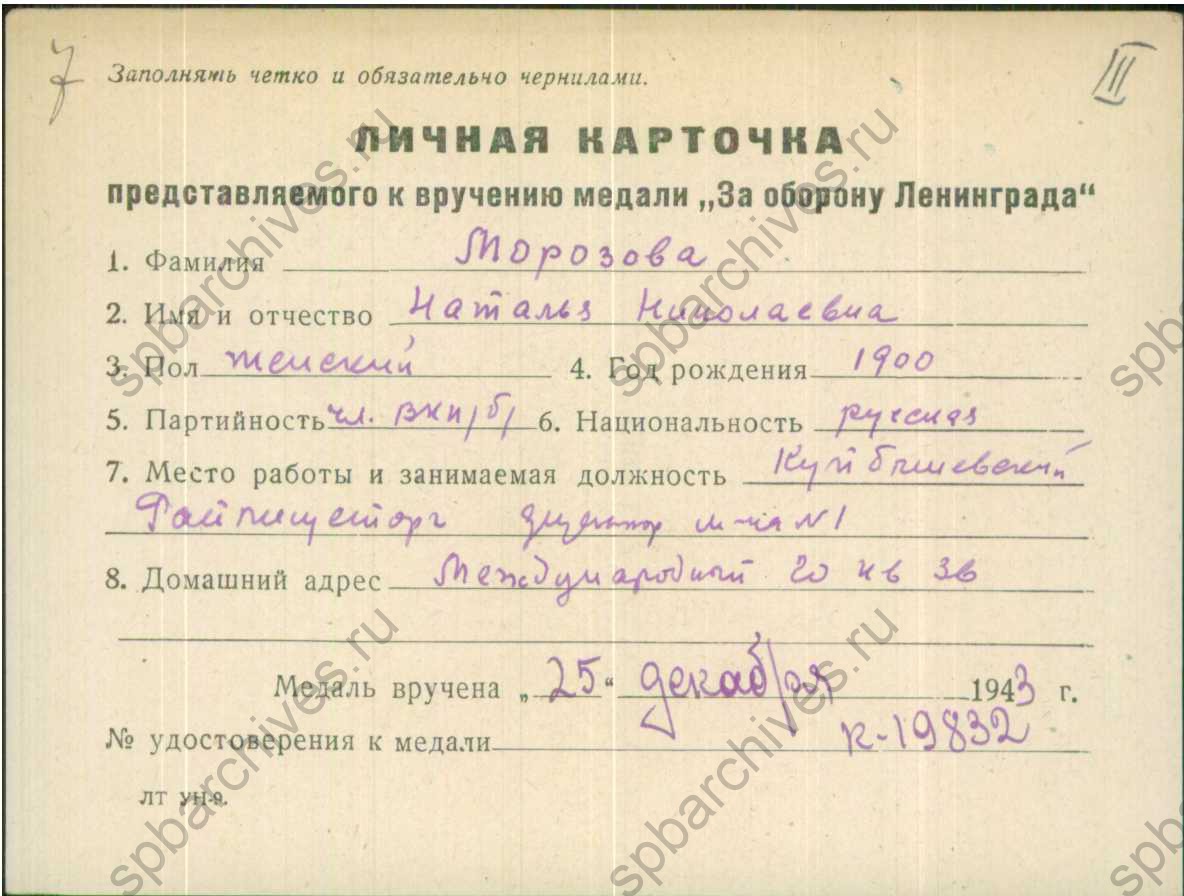 7
III
Заполнять четко и обязательно чернилами.
ЛИЧНАЯ КАРТОЧКА
представляемого к вручению медали „За оборону Ленинграда“
1. Фамилия Морозова
2. Имя и отчество Наталья Николаевна
3. Пол женский 4. Год рождения 1900
5. Партийность чл. ВКП/б/ 6. Национальность русская
7. Место работы и занимаемая должность Куйбышевский
Райпищеторг директор м-на №1
8. Домашний адрес Международный 20 кв 36
Медаль вручена „25“ декабря 1943 г.
№ удостоверения к медали к-19832
ЛТ УН-9.
spbarchives.ru
spbarchives.ru
spbarchives.ru
spbarchives.ru